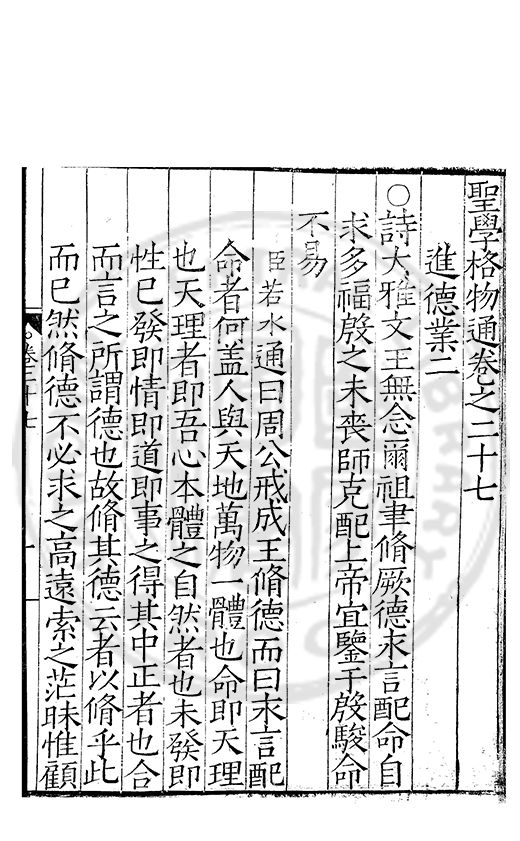 聖學格物通卷之二十七
進德業二
○詩大雅文王無念爾祖聿脩厥德永言配命自
求多福殷之未喪師克配上帝宜鑒于殷駿命
不易
臣若水通曰周公戒成王脩德而曰永言配
命者何盖人與天地萬物一體也命即天理
也天理者即吾心本體之自然者也未發即
性已發即情即道即事之得其中正者也合
而言之所謂德也故脩其德云者以脩乎此
而已然脩德不必求之高遠索之茫昧惟顧
卷二十七
一